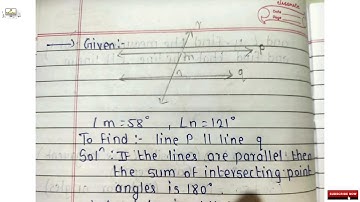 Classmate
Date
Page
Given:-
r
P
m
n
q
∠m = 58° , ∠n = 121°
To find :- line P || line q
Solⁿ : If the lines are parallel then
the sum of intersecting point
angles is 180°
SUBSCRIBE